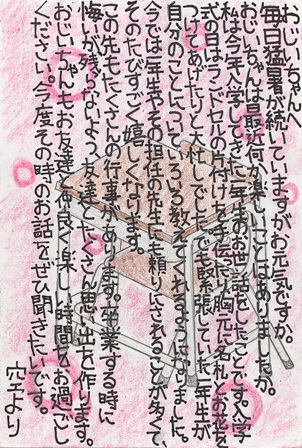 おじいちゃんへ
毎日猛暑が続いていますがお元気ですか。
おじいちゃんは最近何か楽しいことはありましたか。
私は今年入学してきた一年生のお世話をしたことです。入学
式の日はランドセルの片付けを手伝ったり胸元に名札とお花を
つけてあげたりと大忙しでした。でも緊張していた一年生が
自分のことについていろいろ教えてくれるようになりました。
今では一年生やその担任の先生にも頼りにされることが多くて、
そのたびすごく嬉しくなります。
この先もたくさんの行事があります。卒業する時に
悔いが残らないよう、友達とたくさん思い出を作ります。
おじいちゃんもお友達と仲良く楽しい時間をお過ごし
ください。今度その時のお話をぜひ聞きたいです。
空より